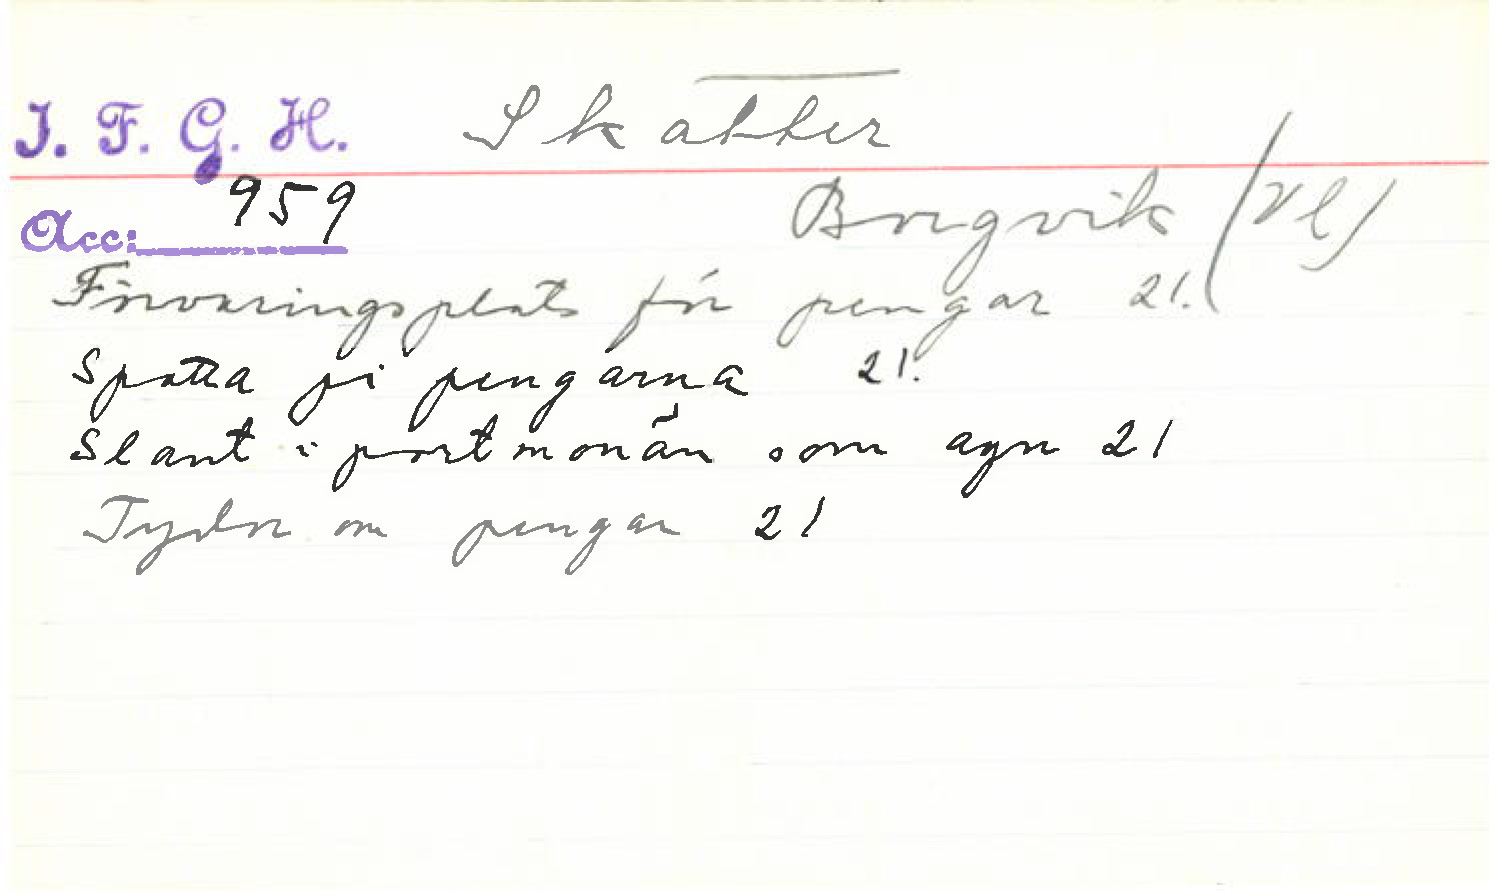 I. F. G. H. Skatter
Acc: 959 Borgvik (Vl)
Förvaringsplats för pengar 21.
Spotta på pengarna 21.
Slant i portmonän som agn 21
Tydor om pengar 21